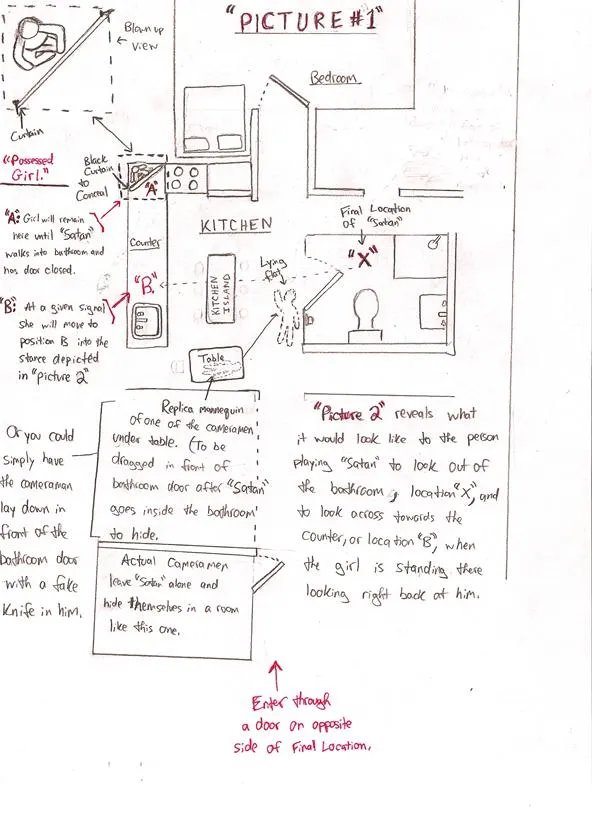 "PICTURE #1"
Blown up
view
Curtain
Bedroom
"Possessed
Girl."
Black
Curtain
to
Conceal
"A"
"A": Girl will remain
here until "Satan"
walks into bathroom and
has door closed.
KITCHEN
Final Location
of "Satan"
"X"
Counter
Lying
flat
"B"
KITCHEN
ISLAND
"B": At a given signal
she will move to
position B into the
stance depicted
in "picture 2"
Table
Replica mannequin
of one of the cameramen
under table. (To be
dragged in front of
bathroom door after "Satan"
goes inside the bathroom
to hide.
Or you could
simply have
the cameraman
lay down in
front of the
bathroom door
with a fake
Knife in him.
"Picture 2" reveals what
it would look like to the person
playing "Satan" to look out of
the bathroom, location "X", and
to look across towards the
counter, or location "B", when
the girl is standing there
looking right back at him.
Actual Cameramen
leave "Satan" alone and
hide themselves in a room
like this one.
Enter through
a door on opposite
side of Final Location.